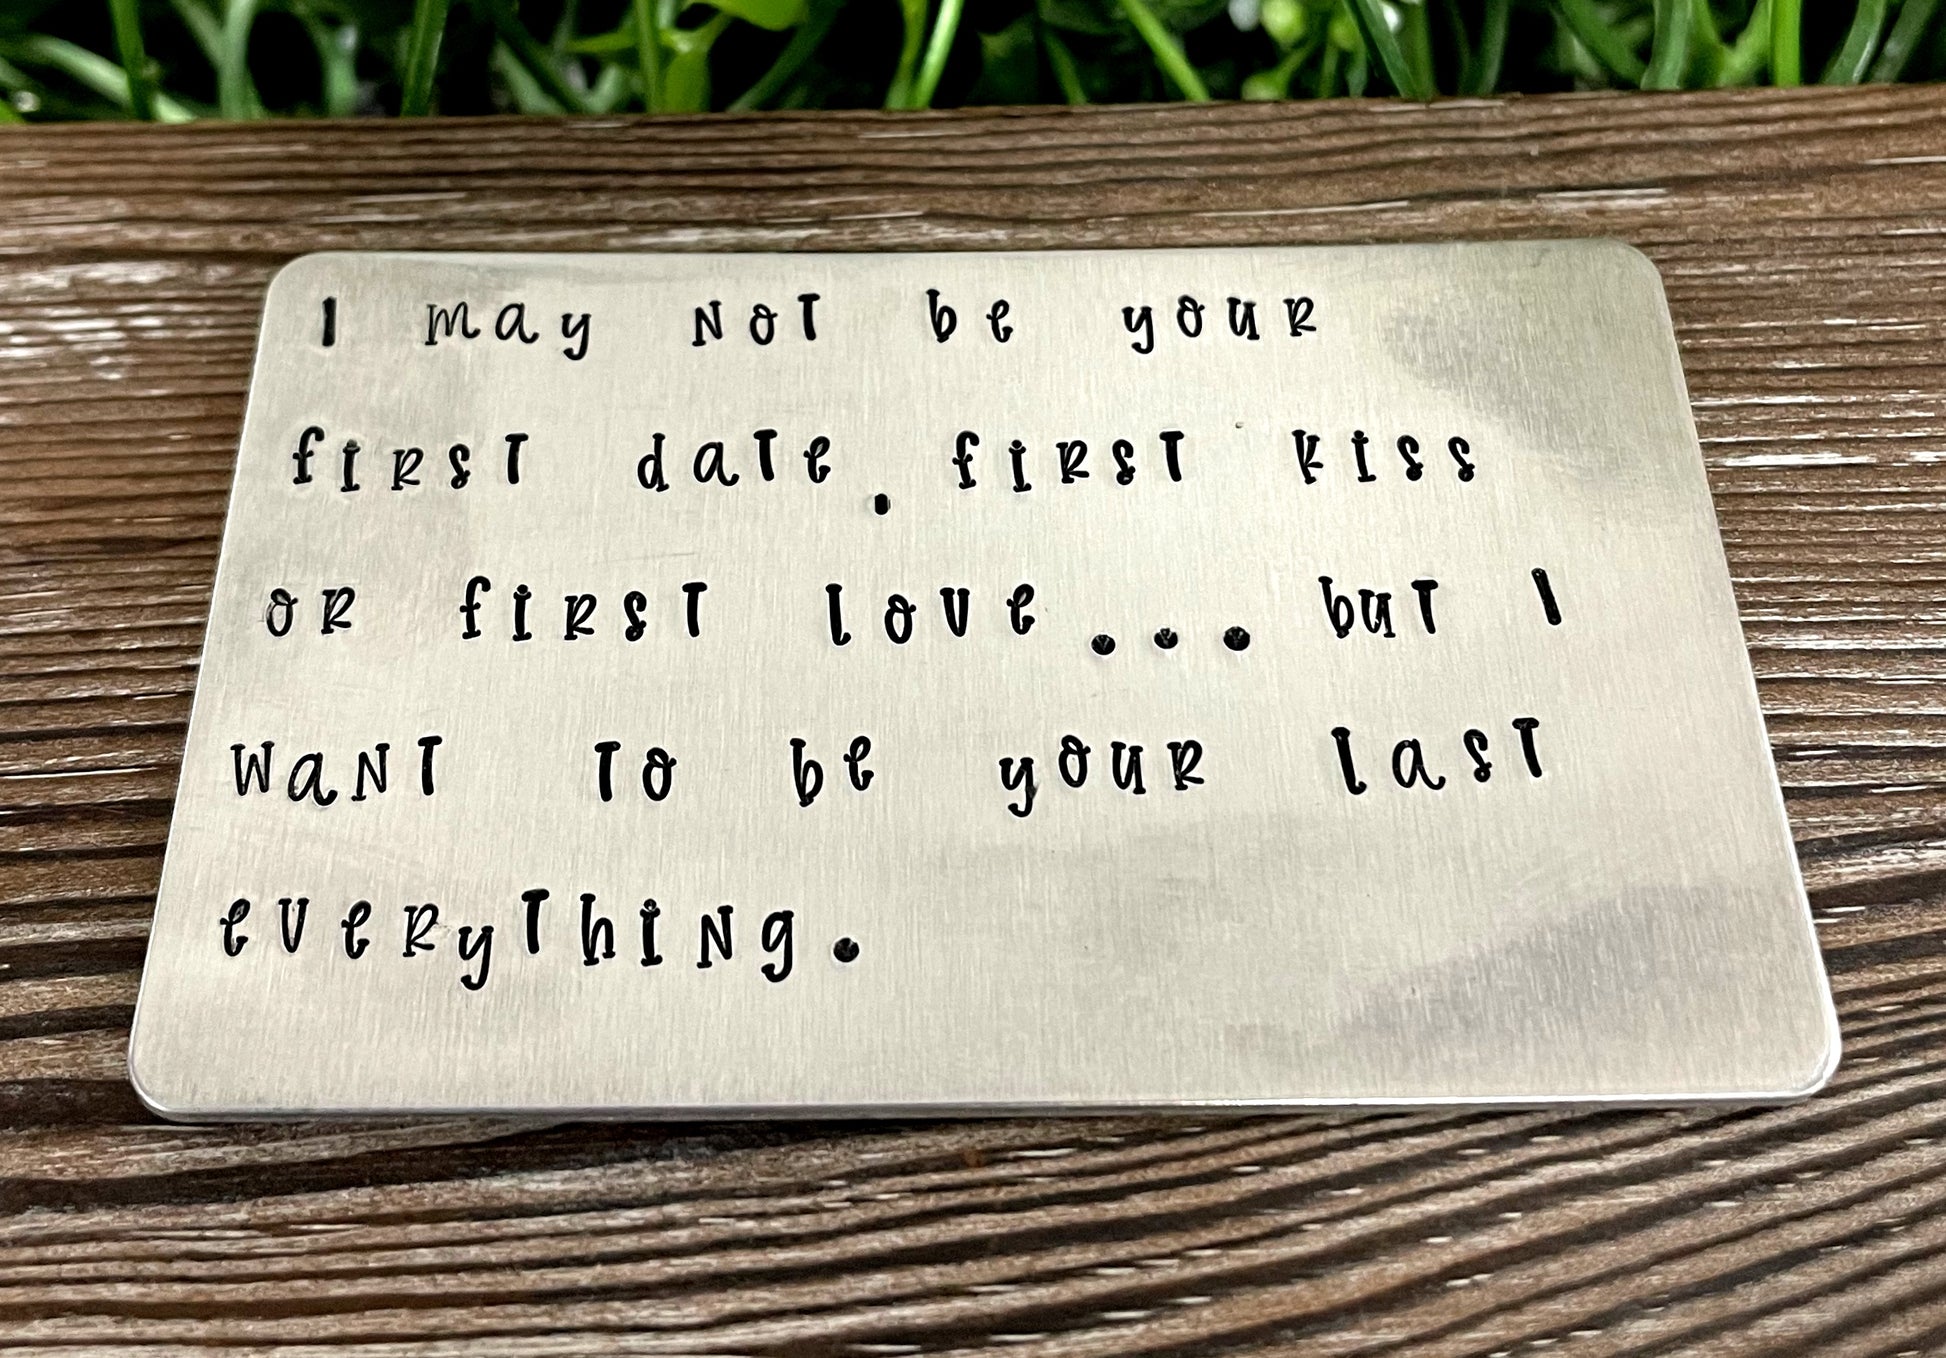 I may not be your
first date, first kiss
or first love... but I
want to be your last
everything.